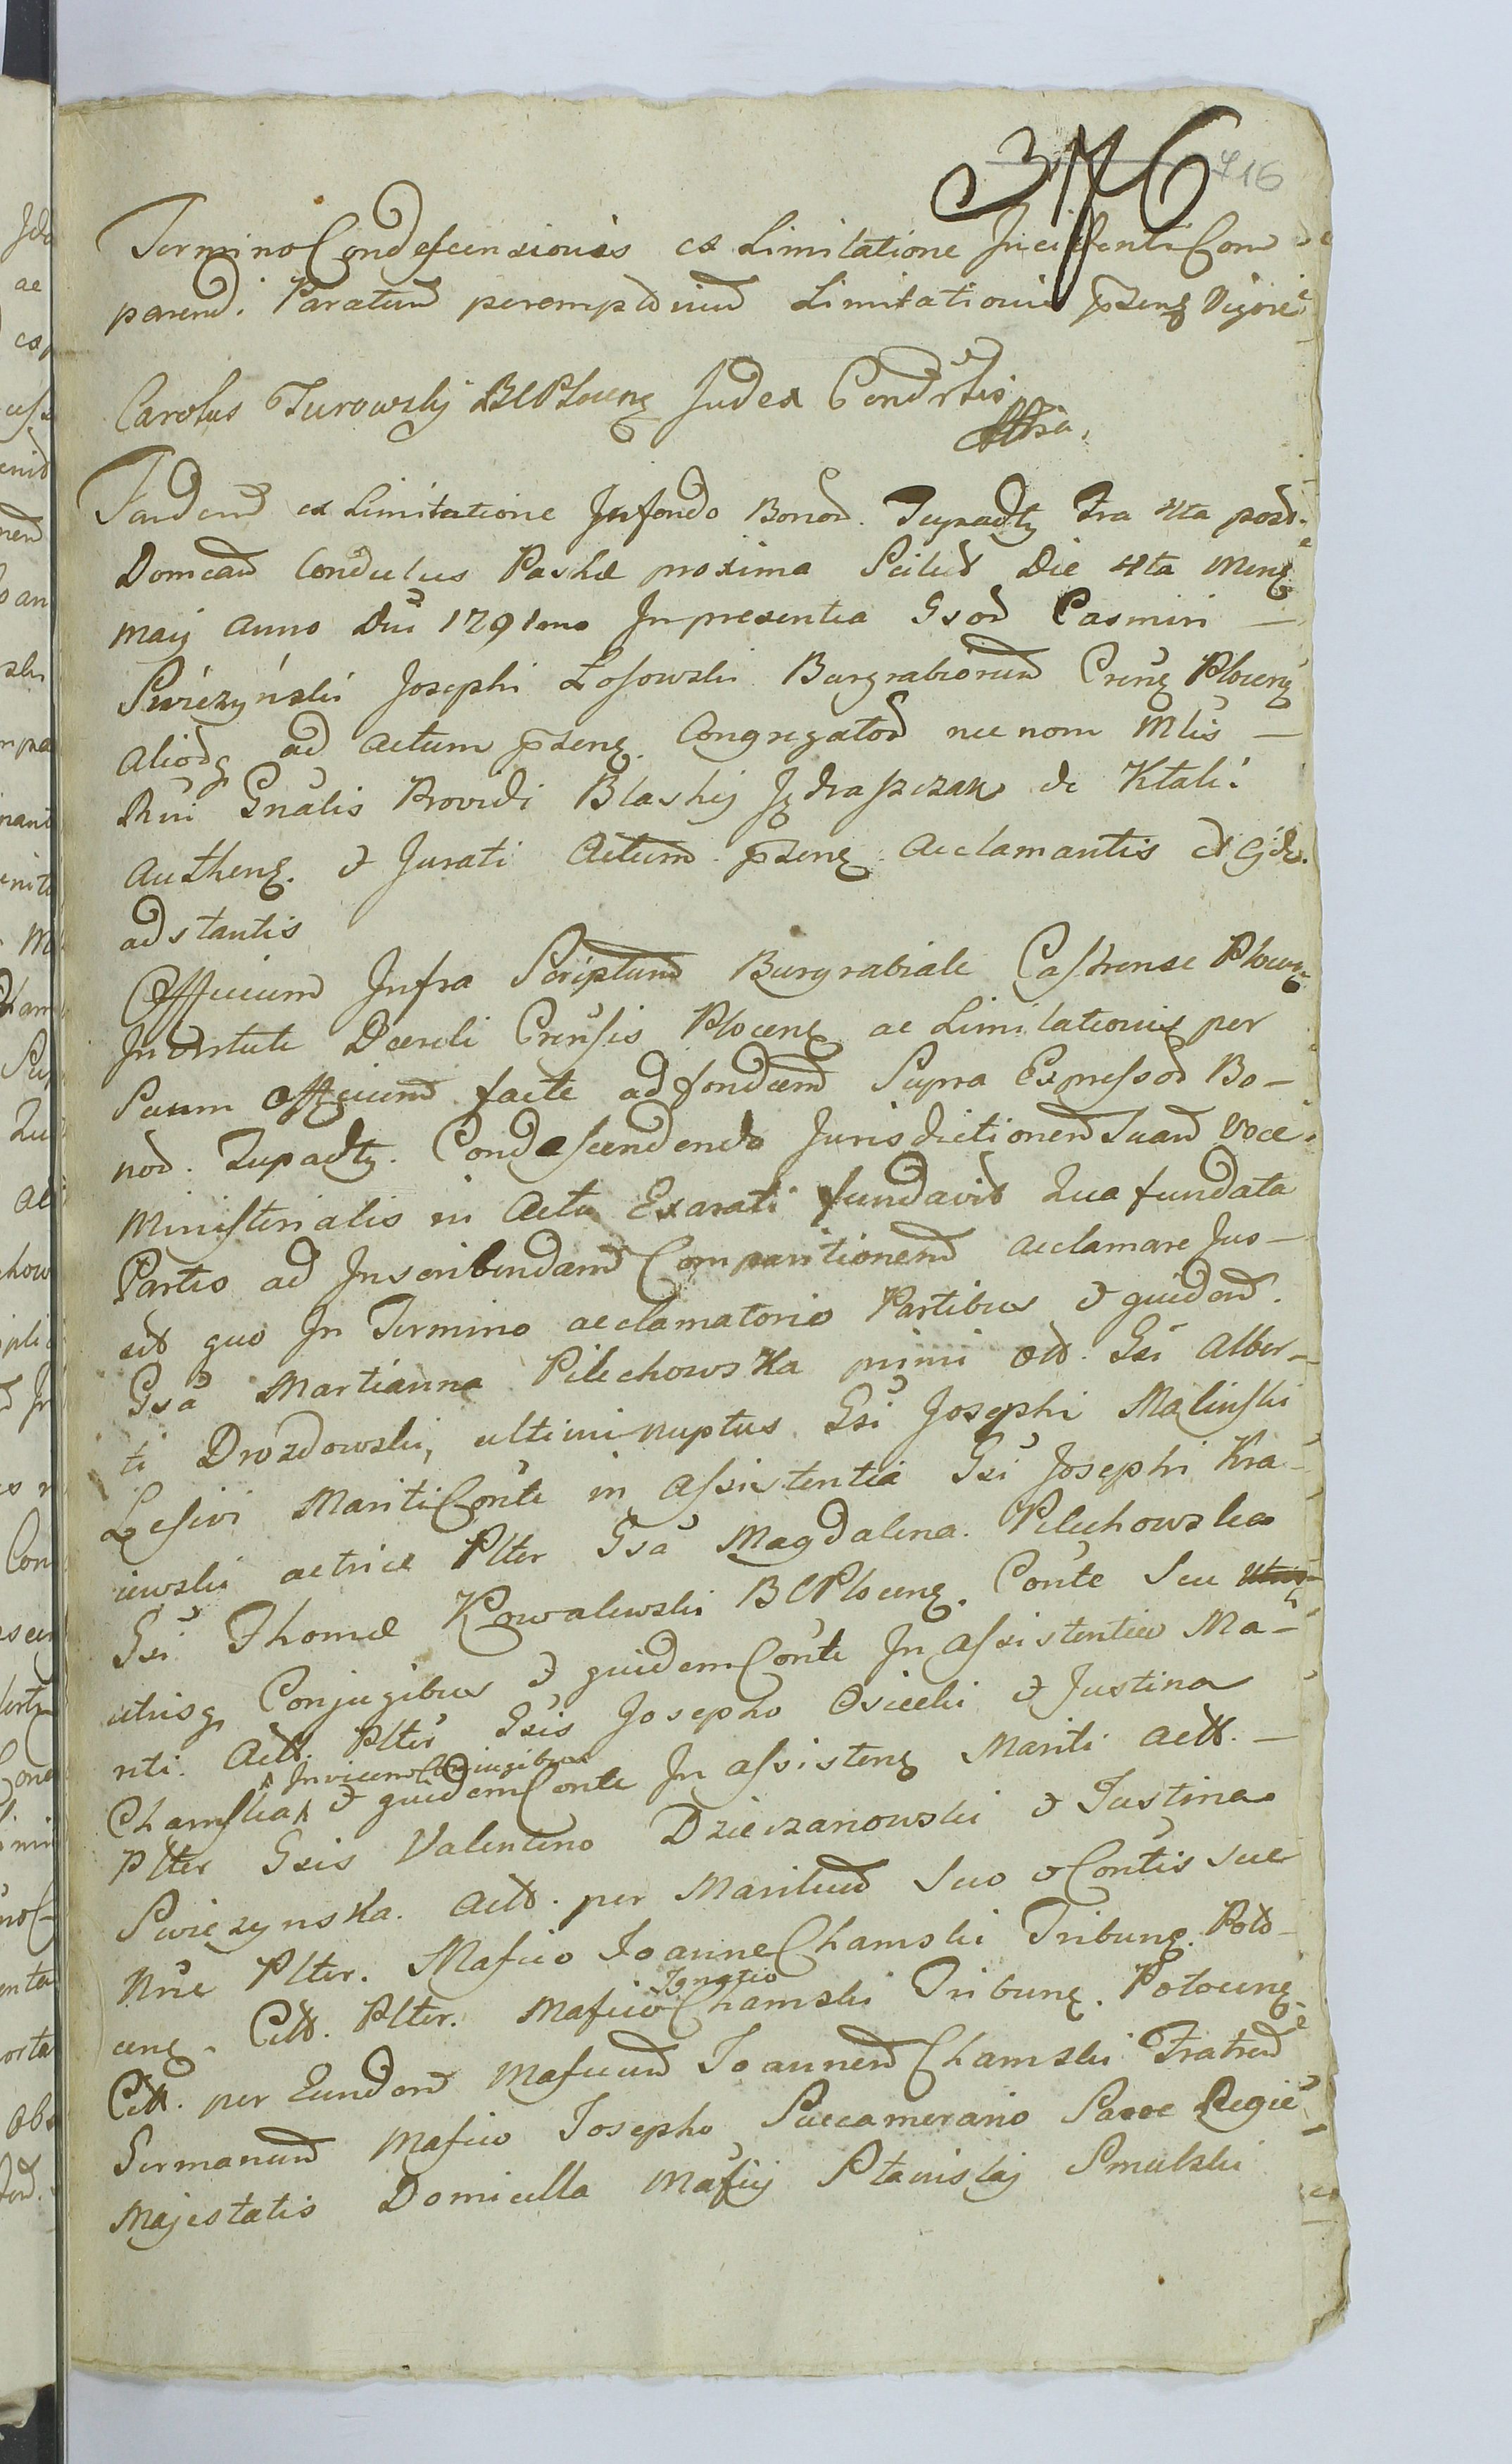 376
716
Termino Condescensionis ex Limitatione Incidenti Com
parend. Paratum peremptorium Limitationis pŕzeng Vigore
Carolus Turowskj BCPloceng Judex Condrlis
Actum ex Limitatione In fondo Bonor. Tupadly Fra 4ta post
Domcam Conductus Paschæ proxima Scilict Die 4ta Meng
maij anno Dni 1791mo In presentia Gsor Casmiri —
Swiezyński Josephi Losowski Burgrabiorum Creng Ploceng
aliorq ad actum pŕzeng. Congregator nec nom Mlis —
Rni Gnalis Providi Blaskij Jędraszczak de Ktali
Autheng. et Jurati Actum pŕzeng acclamantis et
adstantis
Officium Infra Scriptum Burgrabiale Castrense Ploceng
In virtute Dcereti Crensis Ploceng ac Limitationis per
Suum officium facte ad fondum Supra Expressor Bo-
nor. Tupadly. Condescendendo Jurisdictionem Suam voce
Ministerialis in Actu Exarati fundavit Qua fundata
Partes ad Inscribendam Comparitionem acclamare Jus-
sit quo In Termino acclamatorio Partibus et quidem.
Gsa Martianna Pilechowska primi olt. Gsi Alber-
ti Drozdowski, ultimi nuptus Gsi Josephi Malinski
Lesivi Mariti Conte in assistentia Gsi Josephi Kra-
iewski actrice Plter Gsa Magdalena Pilechowska
Gsi Thomæ Kowalewski BCPloceng. Conte Seu
utrisq Conjugibus et quidem Conte In assistentia Ma-
riti. Act. Plter Gsis Josepho Osiecki et Justina
Invicem Conjugibus
Chamska et quidem Conte In assisteng Mariti act. —
Plter Gsis Valentino Dzieczanowski et Justina
Swiezynska. Act. per Maritum Suo et Contis Sue
Nne Plter. Mafico Joanne Chamski Tribung. Poto-
Ignatio
ceng. Citt. Plter. Mafico Chamski Tribung. Potoceng
Citt. per Eundem Maficum Joannem Chamski Fratrem
Germanum Mafico Josepho Succamerario Sacre Regie
Majestatis Domicella Maficij Stanislaj Smulski